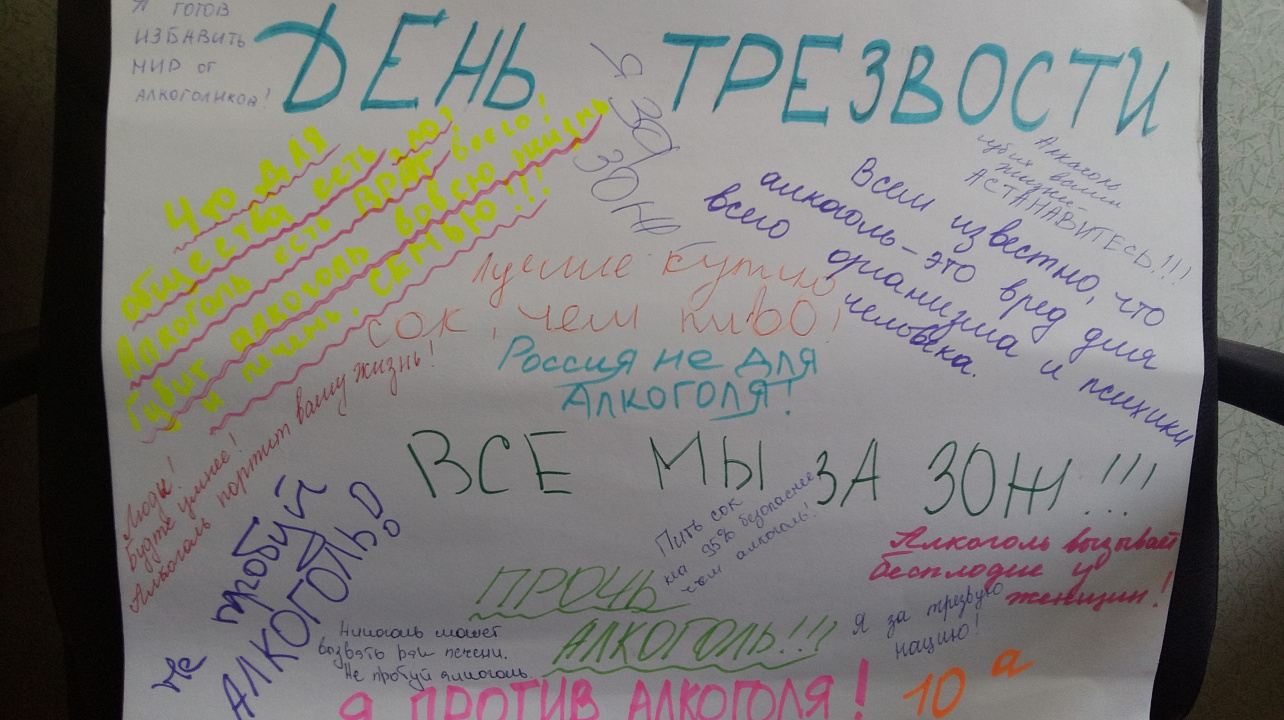 Я ГОТОВ
ИЗБАВИТЬ
МИР от
АЛКОГОЛИКОВ!
ДЕНЬ ТРЕЗВОСТИ
Я ЗА
ЗОЖ
Что для
общества есть зло?
Алкоголь есть ВРАГ всего!
Губит алкоголь вовсю жизнь
и печень, СЕМЬЮ!!!
Алкаголь
губит ваши
жизни
АСТАНАВИТЕСЬ!!!
Всем известно, что
алкоголь-это вред для
всего организма и психики
человека.
Лучше купить
сок, чем пиво!
Россия не для
Алкоголя!
Люди!
Будте умнее!
Алкоголь портит вашу жизнь!
ВСЕ МЫ ЗА ЗОЖ!!!
Не пробуй
АЛКОГОЛЬ!
Пить сок
на 95% безопаснее
чем алкоголь!
Алкоголь вызывает
бесплодие у
женщин!
ПРОЧЬ
АЛКОГОЛЬ!!!
Я за трезвую
нацию!
может
вызвать рак печени.
Не пробуй алкоголь.
Я ПРОТИВ АЛКОГОЛЯ!
10 а